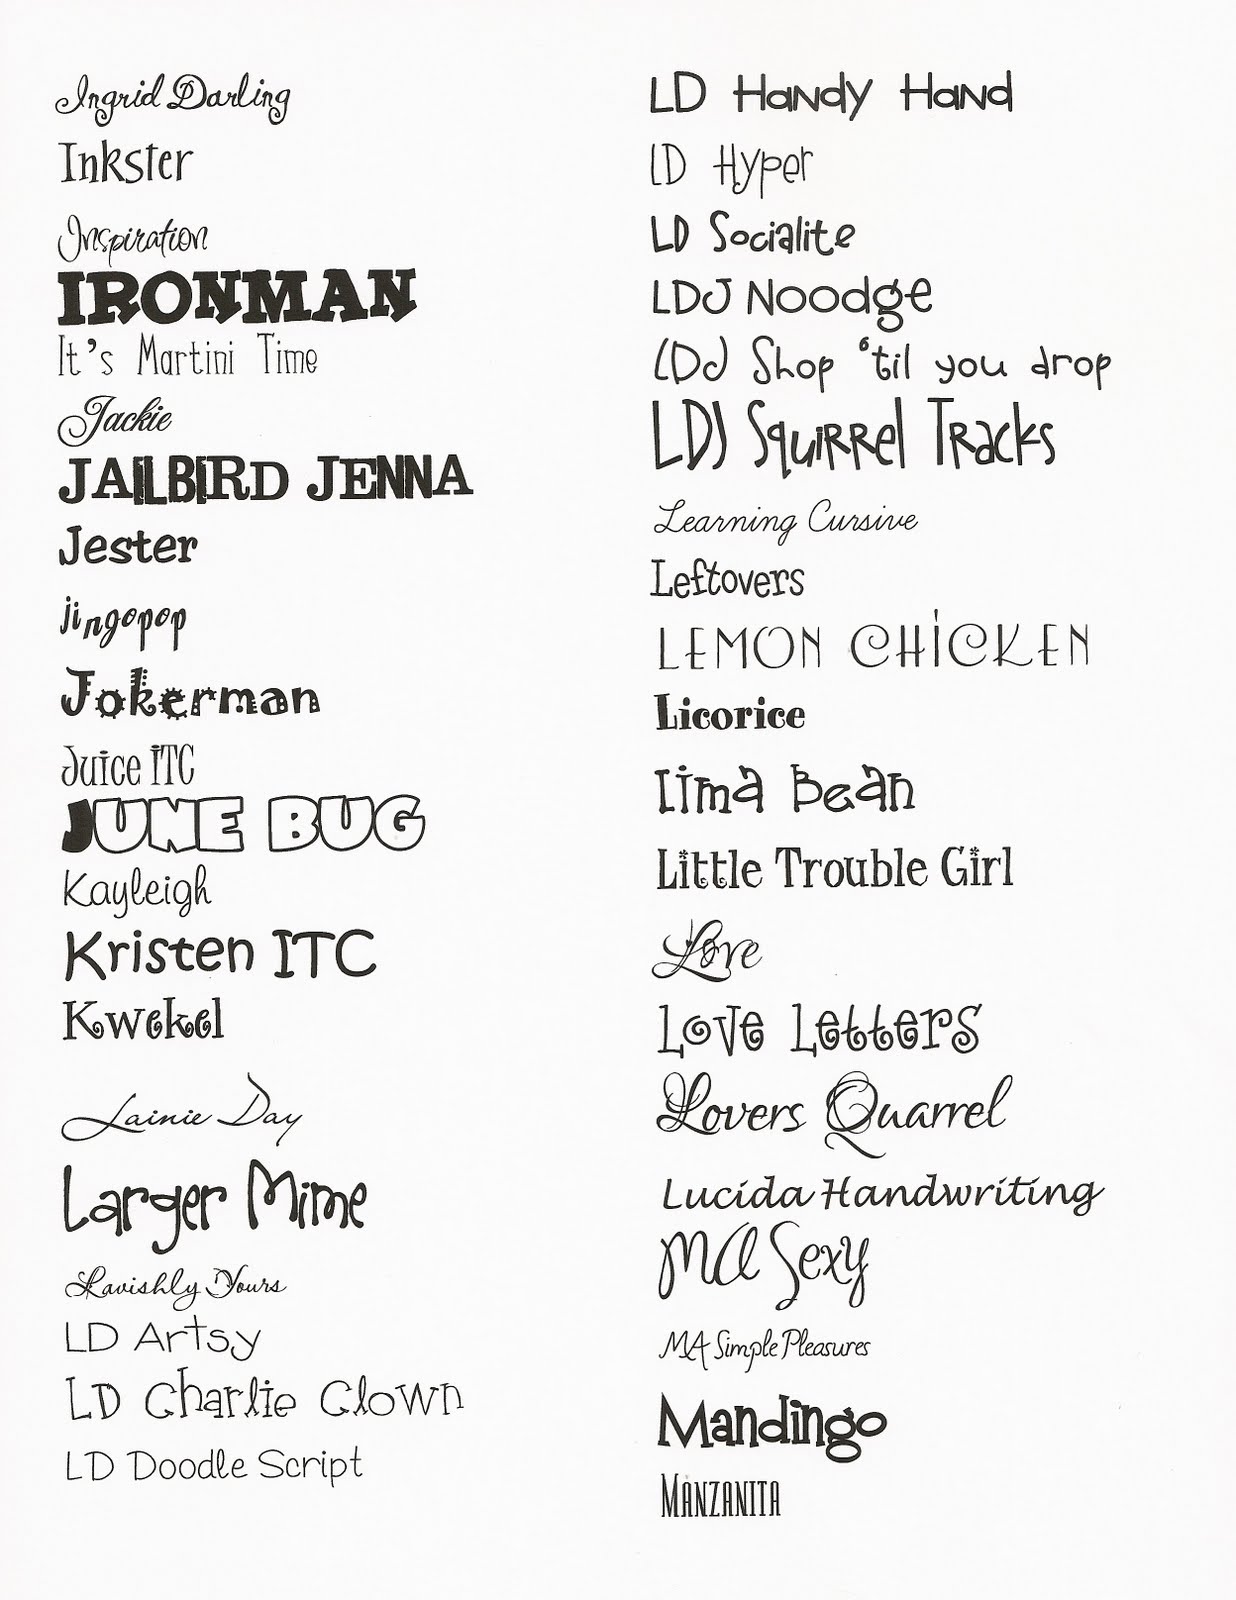 Ingrid Darling
Inkster
Inspiration
IRONMAN
It's Martini Time
Jackie
JAILBIRD JENNA
Jester
jingopop
Jokerman
Juice ITC
JUNE BUG
Kayleigh
Kristen ITC
Kwekel
Lainie Day
Larger Mime
Lavishly Yours
LD Artsy
LD Charlie Clown
LD Doodle Script
LD Handy Hand
LD Hyper
LD Socialite
LDJ Noodge
LDJ Shop 'til you drop
LDJ Squirrel Tracks
Learning Cursive
Leftovers
LEMON CHICKEN
Licorice
Lima Bean
Little Trouble Girl
Love
Love Letters
Lovers Quarrel
Lucida Handwriting
MA Sexy
MA Simple Pleasures
Mandingo
MANZANITA